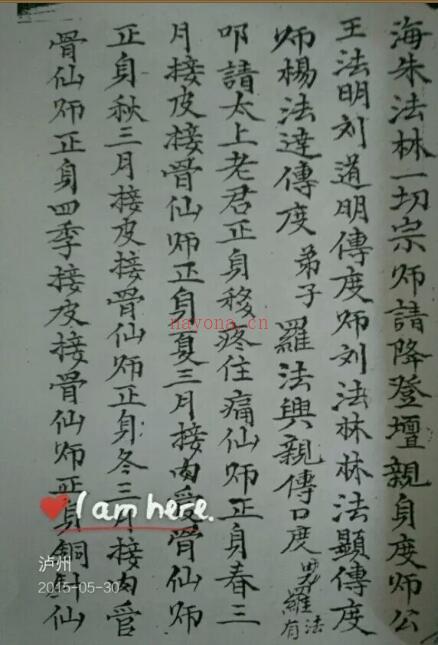 海朱法林一切宗师請降登壇親身度师公
王法明刘道明傳度师刘法林林法顯傳度
师楊法達傳度 弟子 羅法興親傳口度 羅法有
叩請太上老君正身移疼住痛仙师正身春三
月接皮接骨仙师正身夏三月接肉骨仙师
正身秋三月接皮接骨仙师正身冬三月接肉
骨仙师正身四季接皮接骨仙师正身銅針仙
nayona.cn
I am here.
泸州
2015-05-30